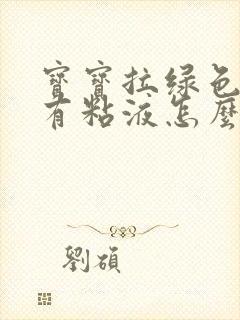 寶寶拉綠色
有粘液怎麼
劉碩